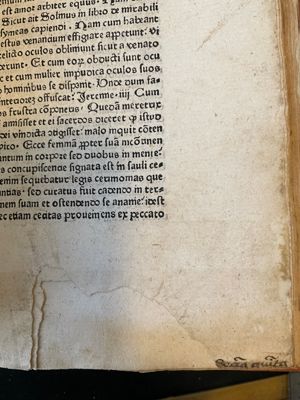 est amor arbiter equus. Nam cum
Sicut ait Solinus in libro de mirabili
symeas capiendi. Nam cum habeant
estus venantium effigiare appetunt. vi
oculos oblimunt sicut a venato
recidunt. Et cum eorum obducti sunt ocu
et cum mulier impudica oculos suos
hominibus se disponit. Unde cum fan
offuscat: Jereme. iiij Cum
frustra cōponeris. Quedā meretrix
amisisset et ei sacerdos diceret ꝙ istud
vindicta ↄtigisset. malo inquit cōten
vico. Ecce femina ꝓpter suā incōtinen
antum in corpore sed duobus in mente.
concupiscentie signata est in sauli ce
enim sequebatur legis cerimonias que
antias. sed curatus fuit cadendo in ter
nem suam et ostendendo se ananie. id est
ec etiam cecitas proueniens ex peccato